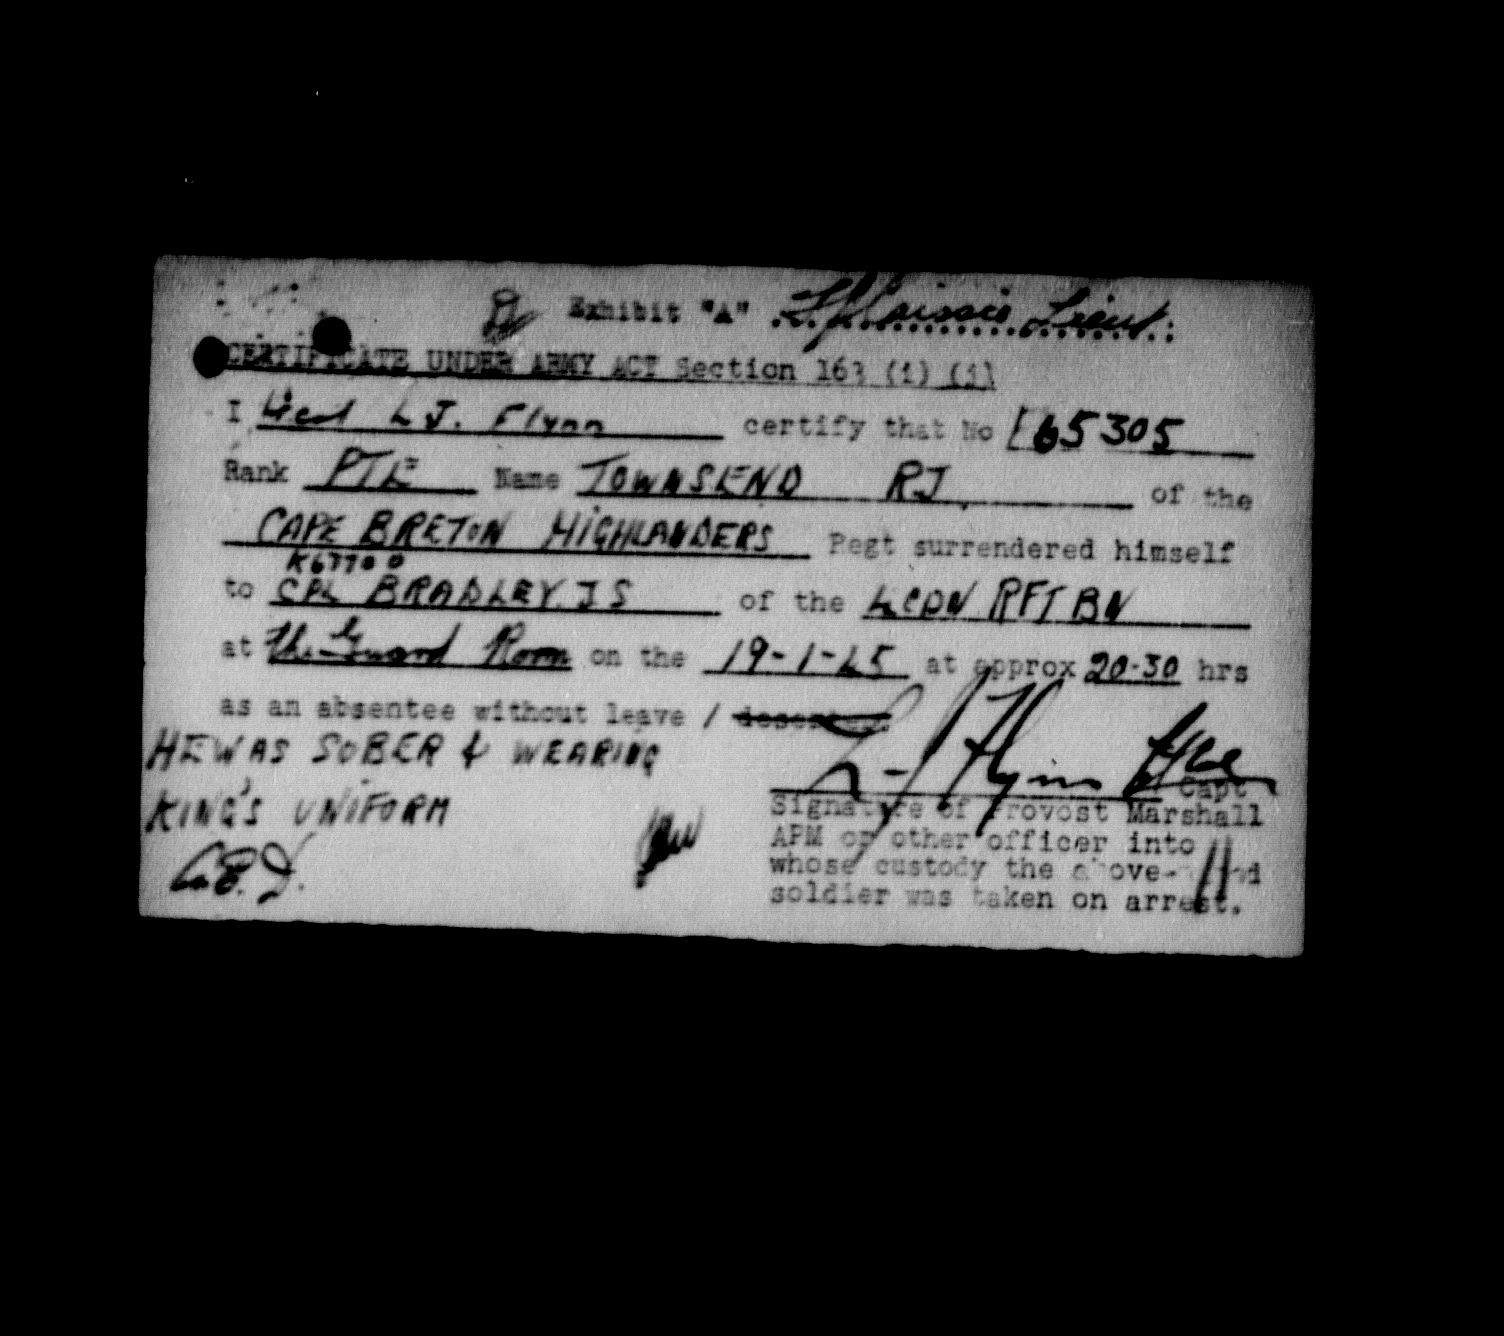 Exhibit "A" Lieut.
CERTIFICATE UNDER ARMY ACT Section 163 (1) (j)
I Lieut L J. Flynn certify that No F65305
Rank PTE Name TOWNSEND RJ of the
CAPE BRETON HIGHLANDERS Regt surrendered himself
K67700
to CPL BRADLEY. J S of the 4 CDN RFT BN
at the Guard Room on the 19-1-45 at approx 20.30 hrs
as an absentee without leave / deserter
HE WAS SOBER & WEARING
KING'S UNIFORM
L J Flynn
Capt
Signature of Provost Marshall
APM or other officer into
whose custody the above-
soldier was taken on arrest.